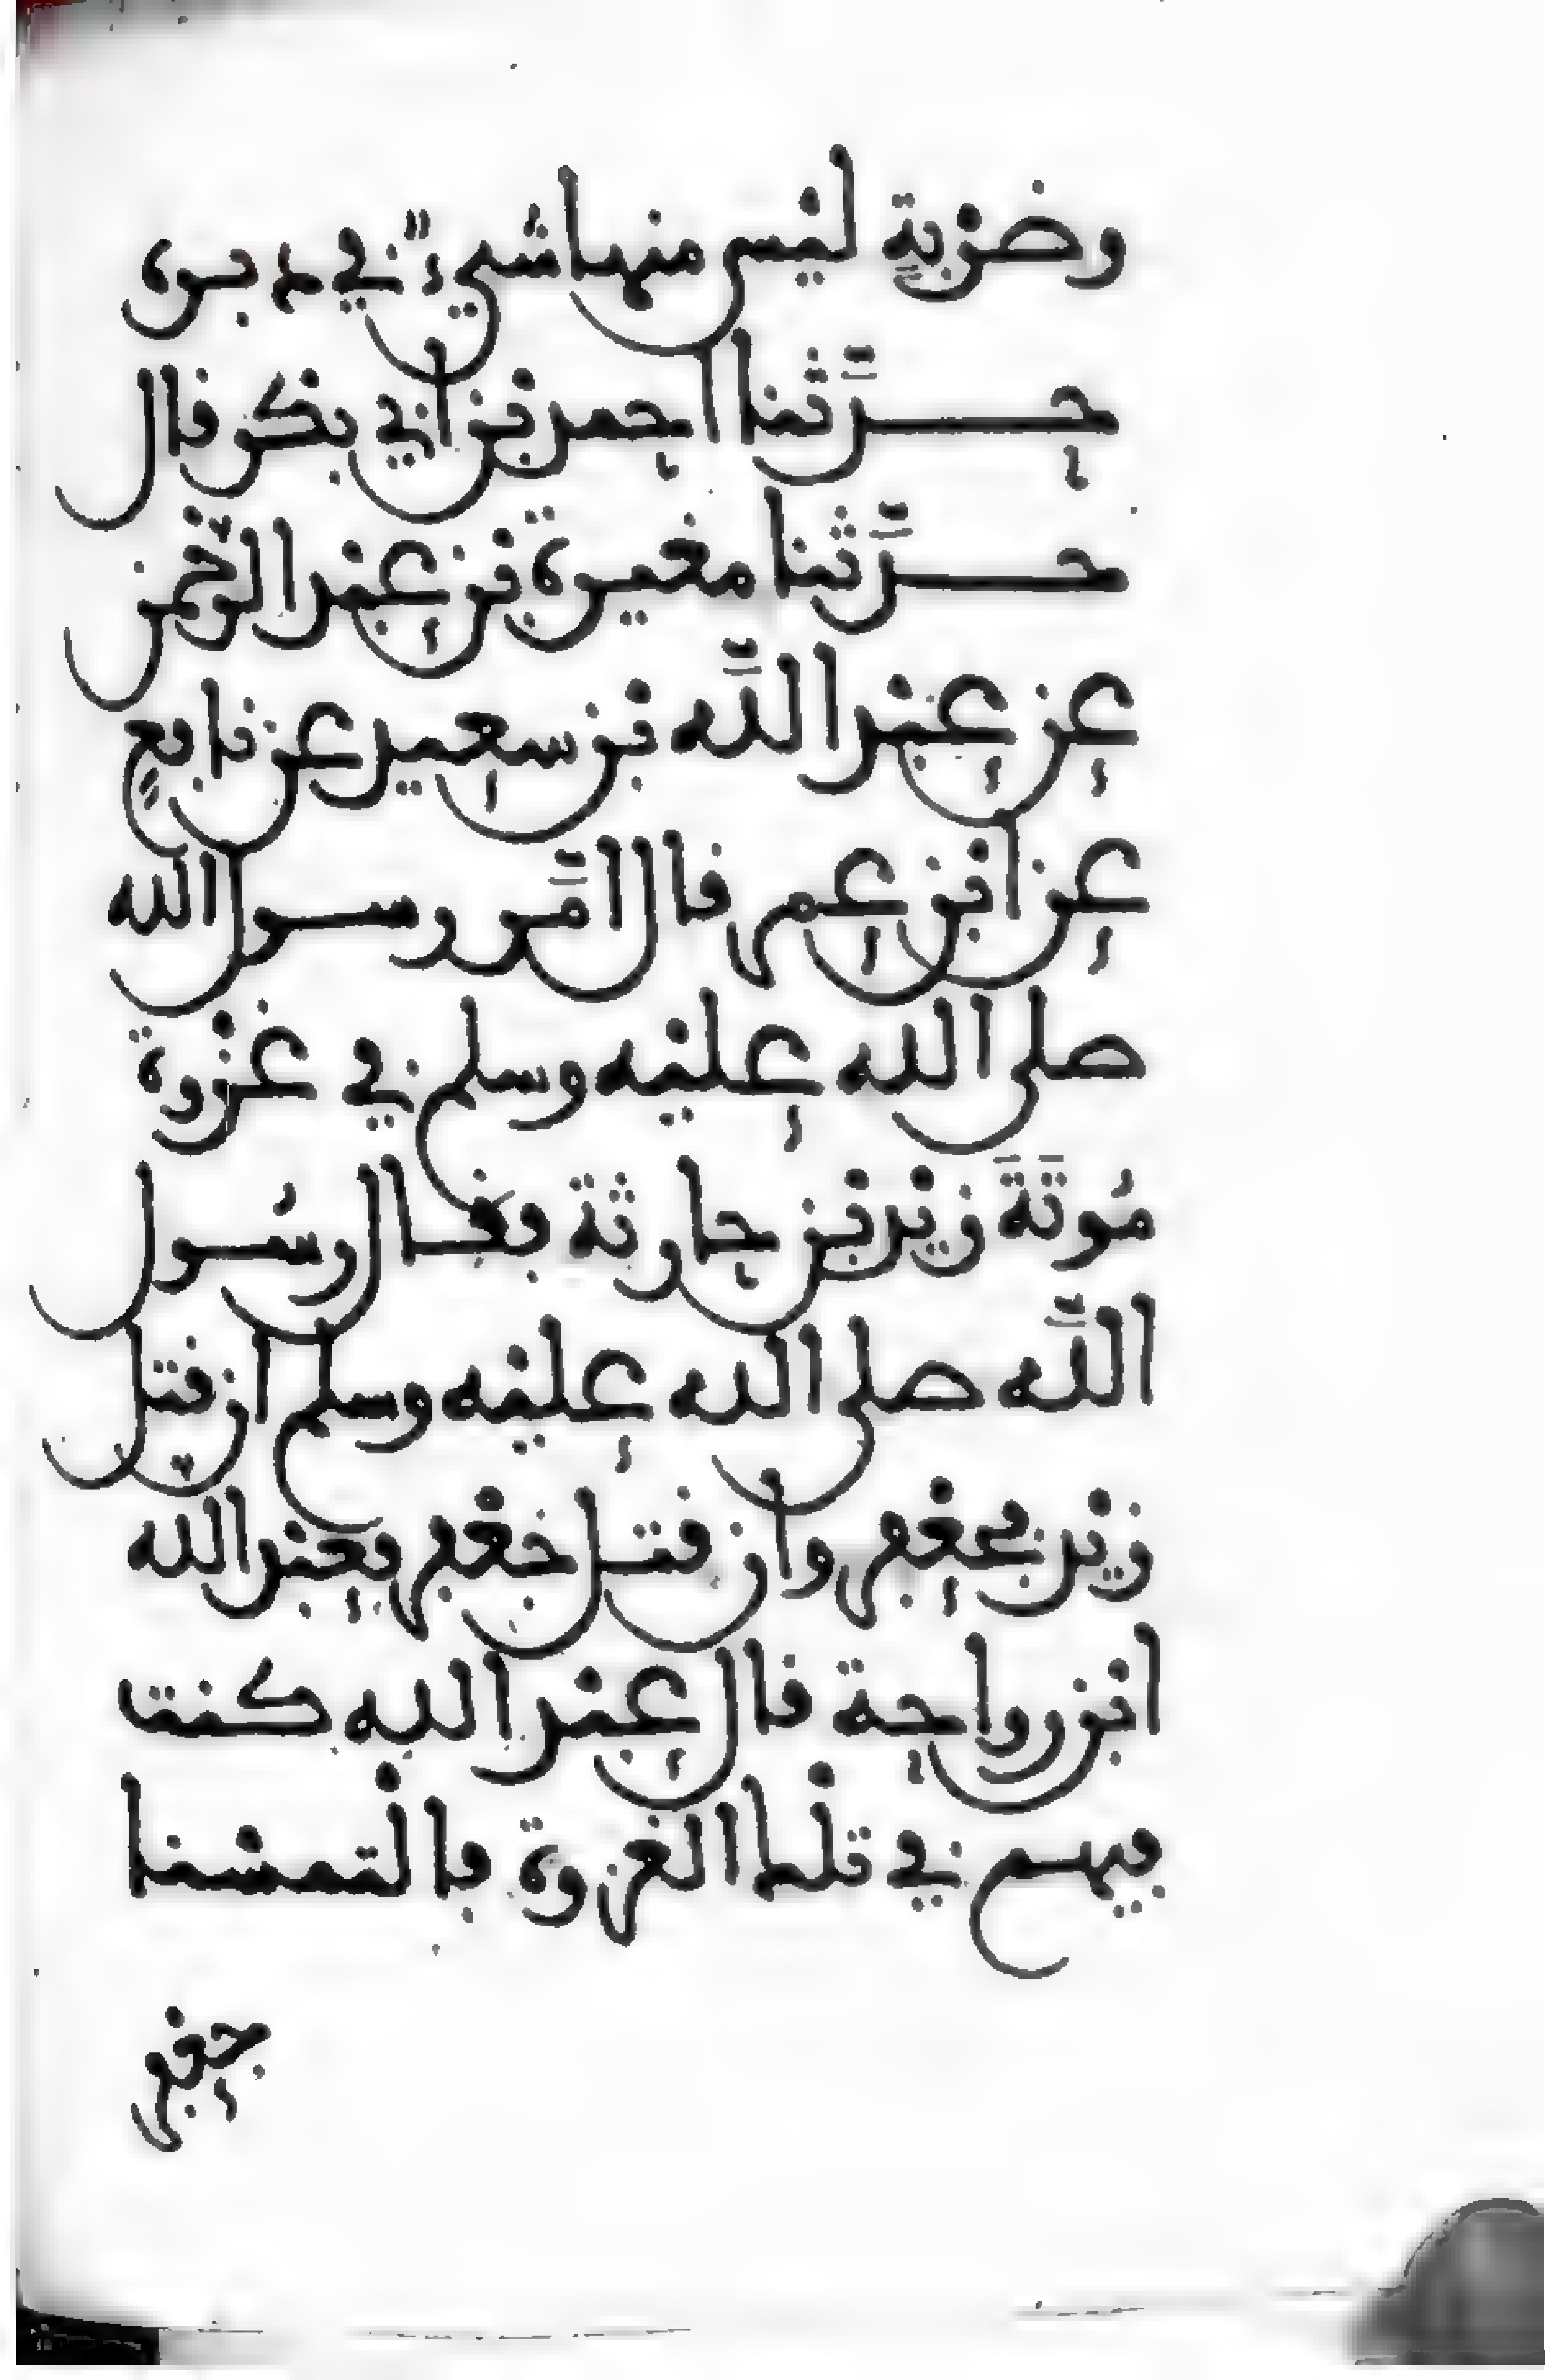 وضرْبةٍ ليْس منها شيءٌ في دبره
حدَّثنا احمد بْن ابي بكْر قال
حدَّثنا مغيرة بْن عبْد الرّحْمن
عن عبْد اللَّه بْن سعيد عن نافعٍ
عن ابْن عمر قال امَّر رسول الله
صلى الله عليْه وسلم في غزْوة
مُوتَةَ زيْد بْن حارثة فقال رسُول
اللَّه صلى الله عليْه وسلم ان قتل
زيْد فجعْفر وان قتل جعْفر فعبْد الله
ابْن رواحة قال عبْد الله كنت
فيهم في تلْك الغزوة فالْتمسْنا
جعْفر